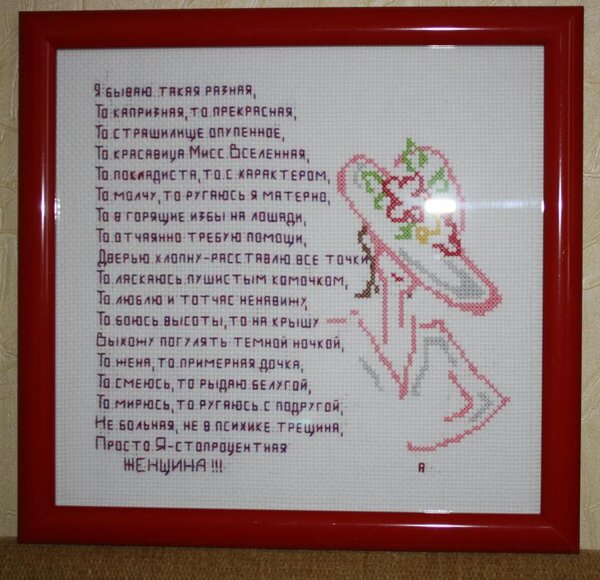 Я бываю такая разная,
То капризная, то прекрасная,
То страшилище опупенное,
То красавица Мисс Вселенная,
То покладиста, то с характером,
То молчу, то ругаюсь я матерно,
То в горящие избы на лошади,
То отчаянно требую помощи,
Дверью хлопну-расставлю все точки
То ласкаюсь пушистым комочком,
То люблю и тотчас ненавижу,
То боюсь высоты, то на крышу
Выхожу погулять темной ночкой,
То жена, то примерная дочка,
То смеюсь, то рыдаю белугой,
То мирюсь, то ругаюсь с подругой,
Не больная, не в психике трещина,
Просто Я-стопроцентная
ЖЕНЩИНА!!!
Я